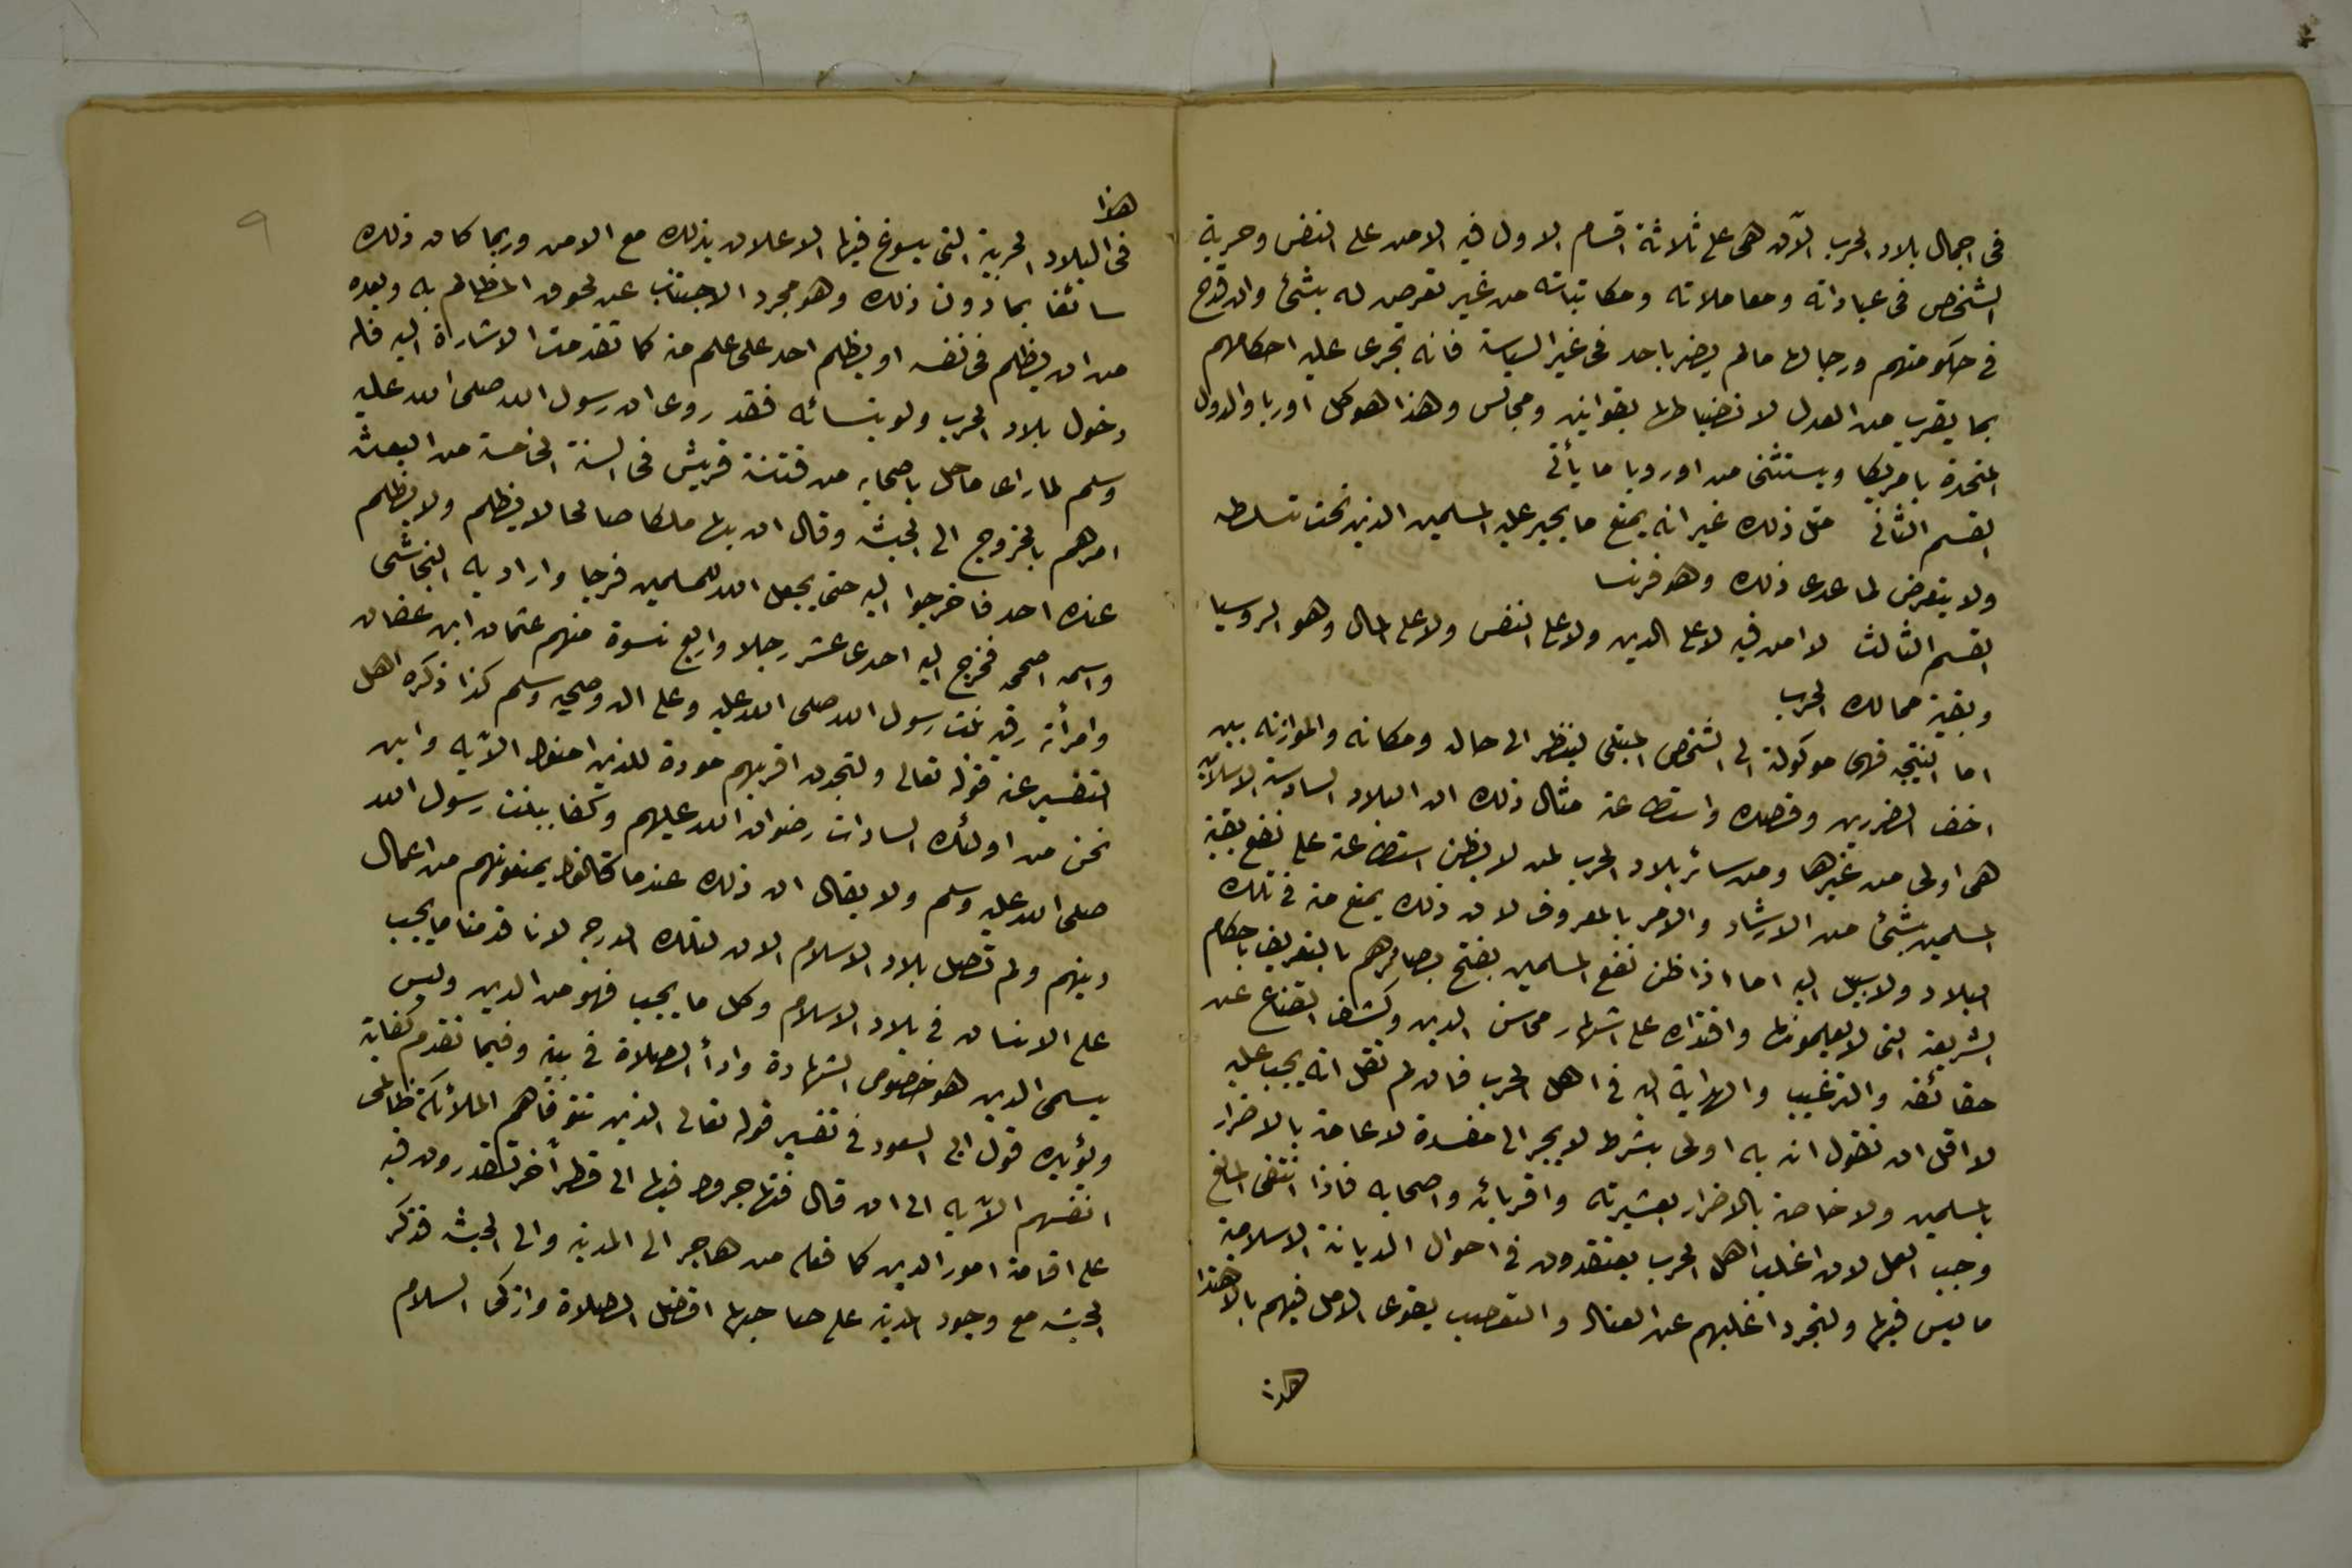 فى اجمال بلاد الحرب الآن هى على ثلاثة اقسام الاول فيه الامن على النفس وحرية
الشخص فى عباداته ومعاملاته ومكاتباته من غير تعرض له بشئ وان قدح
فى حكومتهم ورجالها مالم يضر باحد فى غير السياسة فانه تجرى عليه احكامهم
بما يقرب من العدل لانضباطها بقوانين ومجالس وهذا هو كل اوربا والدول
المتحدة بامريكا ويستثنى من اوروبا ما يأتى
القسم الثانى مثل ذلك غير انه يمنع ما يجير عليه المسلمين الذين تحت تسلطه
ولا يتعرض لما عدى ذلك وهو فرنسا
القسم الثالث لا امن فيه لا على الدين ولا على النفس ولا على المال وهو الروسيا
وبقية ممالك الحرب
اما النتيجه فهى موكولة الى الشخص المبتلى لينظر الى حاله ومكانه والموازنه بين
اخف الضررين وقصده واستطاعته مثال ذلك ان البلاد السادسة الاسلاميه
هى اولى من غيرها ومن سائر بلاد الحرب لمن لا يظن استطاعته على نفع بقية
المسلمين بشئ من الارشاد والامر بالمعروف لان ذلك يمنع منه فى تلك
البلاد ولا سبيل اليه اما اذا ظن نفع المسلمين بفتح بصائرهم بالتعريف باحكام
الشريعة التى لا يعلمونها واقتداره على اشهار محاسن الدين وكشف القناع عن
حقائقه والترغيب والهداية اليه فى اهل الحرب فان لم نقل انه يجب عليه
لا اقل ان نقول انه به اولى بشرط لا يجر الى مفسدة لا عامة بالاضرار
بالمسلمين ولا خاصة بالاضرار بعشيرته واقربائه واصحابه فاذا انتفى المانع
وجب العمل لان اغلب اهل الحرب يعتقدون فى احوال الديانة الاسلامية
ما ليس فيها ولتجرد اغلبهم عن العناد والتعصب يقوى الامل فيهم بالاهتدا
هذا
٩
هذا
فى البلاد الحربية التى يسوغ فيها الاعلان بذلك مع الامن وربما كان ذلك
سائغا بما دون ذلك وهو مجرد الاجتناب عن لحوق المظالم به وبعده
من ان يظلم فى نفسه او يظلم احد على علم منه كما تقدمت الاشارة اليه فله
دخول بلاد الحرب ولو بنسائه فقد روى ان رسول الله صلى الله عليه
وسلم لما راى ما حل باصحابه من فتنة قريش فى السنة الخامسة من البعثه
امرهم بالخروج الى الحبشه وقال ان بها ملكا صالحا لا يظلم ولا يظلم
عنده احد فاخرجوا اليه حتى يجعل الله للمسلمين فرجا واراد به النجاشى
واسمه اصحمه فخرج اليه احدى عشر رجلا واربع نسوة منهم عثمان ابن عفان
وامرأته رقيه بنت رسول الله صلى الله عليه وعلى اله وصحبه وسلم كذا ذكره اهل
التفسير عند قوله تعالى ولتجدن اقربهم مودة للذين امنوا الآيه واين
نحن من اولئك السادات رضوان الله عليهم وكفا ببنت رسول الله
صلى الله عليه وسلم ولا يقال ان ذلك عندما كانوا يمنعونهم من اعمال
دينهم ولم تصل بلاد الاسلام الان لتلك الدرجه لانا قدمنا ما يجب
على الانسان فى بلاد الاسلام وكل ما يجب فهو من الدين وليس
يسمى الدين هو خصوص الشهادة وادأ الصلاة فى بيته وفيما تقدم كفاية
ويؤيده قول ابى السعود فى تفسير قوله تعالى الذين تتوفاهم الملائكة ظالمى
انفسهم الآيه الى ان قال فتهاجروا فيها الى قطر آخر تقدرون فيه
على اقامة امور الدين كما فعله من هاجر الى المدينه والى الحبشه فذكر
الحبشه مع وجود المدينه على صاحبها افضل الصلاة وازكى السلام